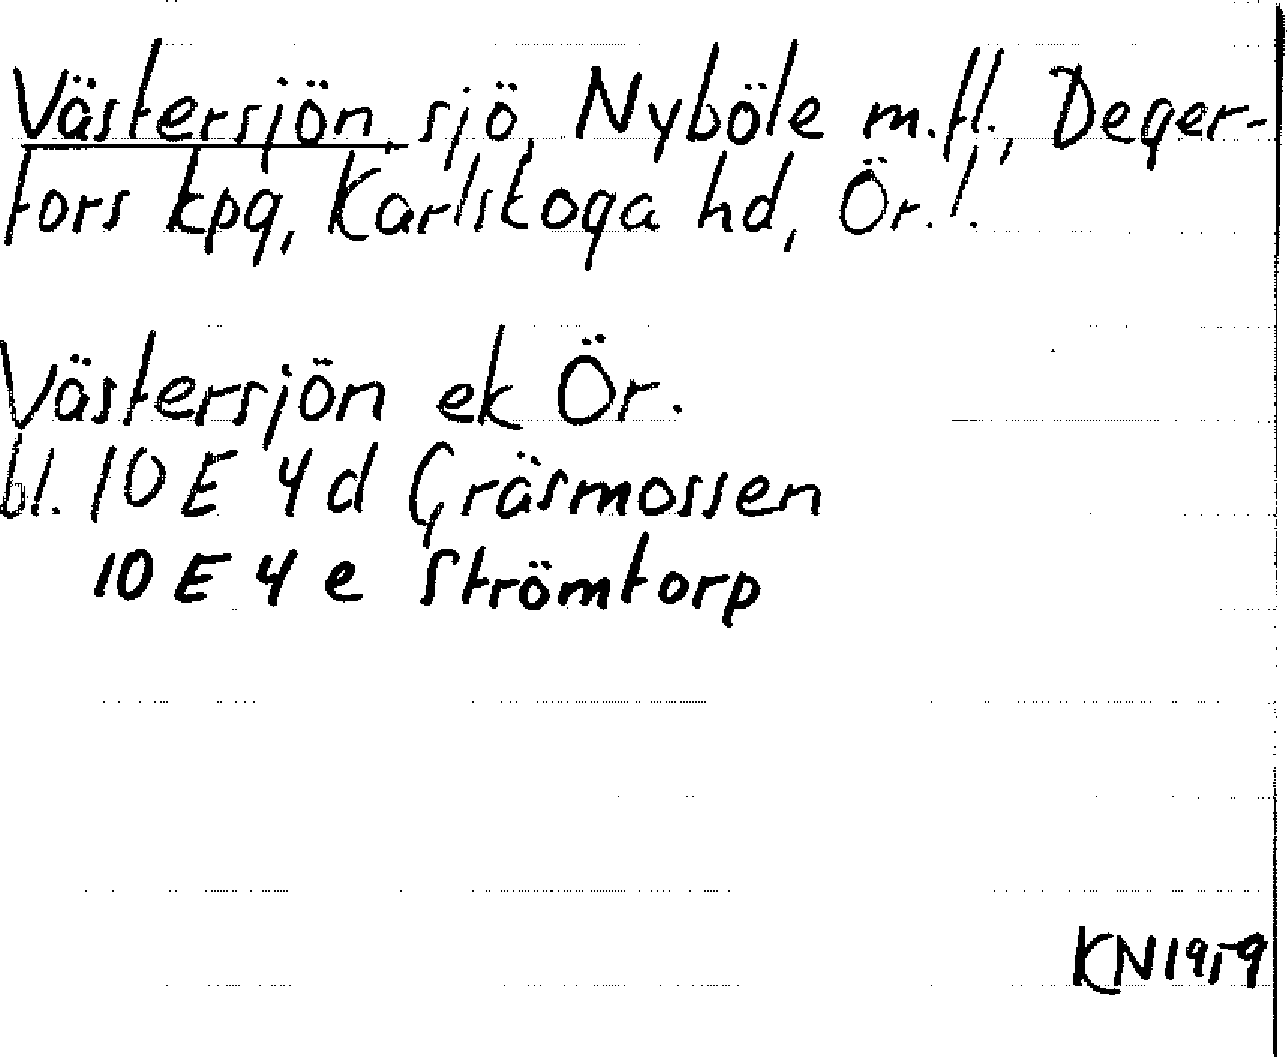 Västersjön, sjö, Nyböle m.fl., Deger-
fors kpg, Karlskoga hd, Ör.l.
Västersjön ek Ör.
bl. 10 E 4 d Gräsmossen
10 E 4 e Strömtorp
KN 1959